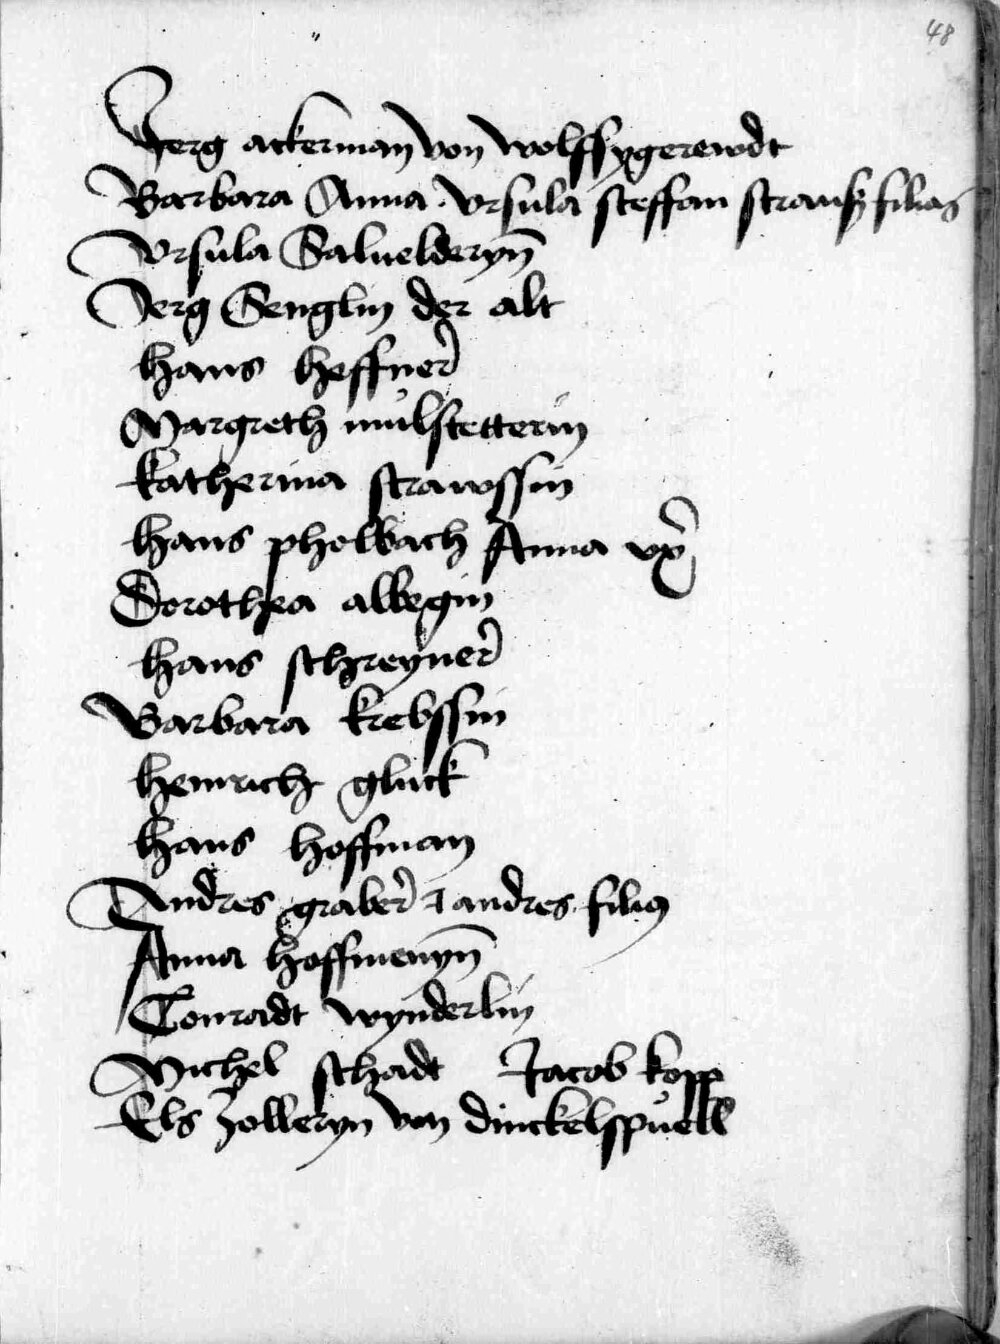 48
Jerg ackerman von wolffsgerewdt
Barbara Anna Vrsula steffan strauß filias
Vrsula Saluelderyn
Jerg Senglin der alt
hans heffner
Margreth mulstetterin
Katherina strawssin
hans pholbach Anna vx
Dorothea albegin
hans schreyner
Barbara krebssin
heinrich gluck
hans hoffman
Andres graber andres filius
Anna hoffmenyn
Conradt wynderlin
Michel schadt Jacob kopp
Els Zolleryn von dinckelspuell